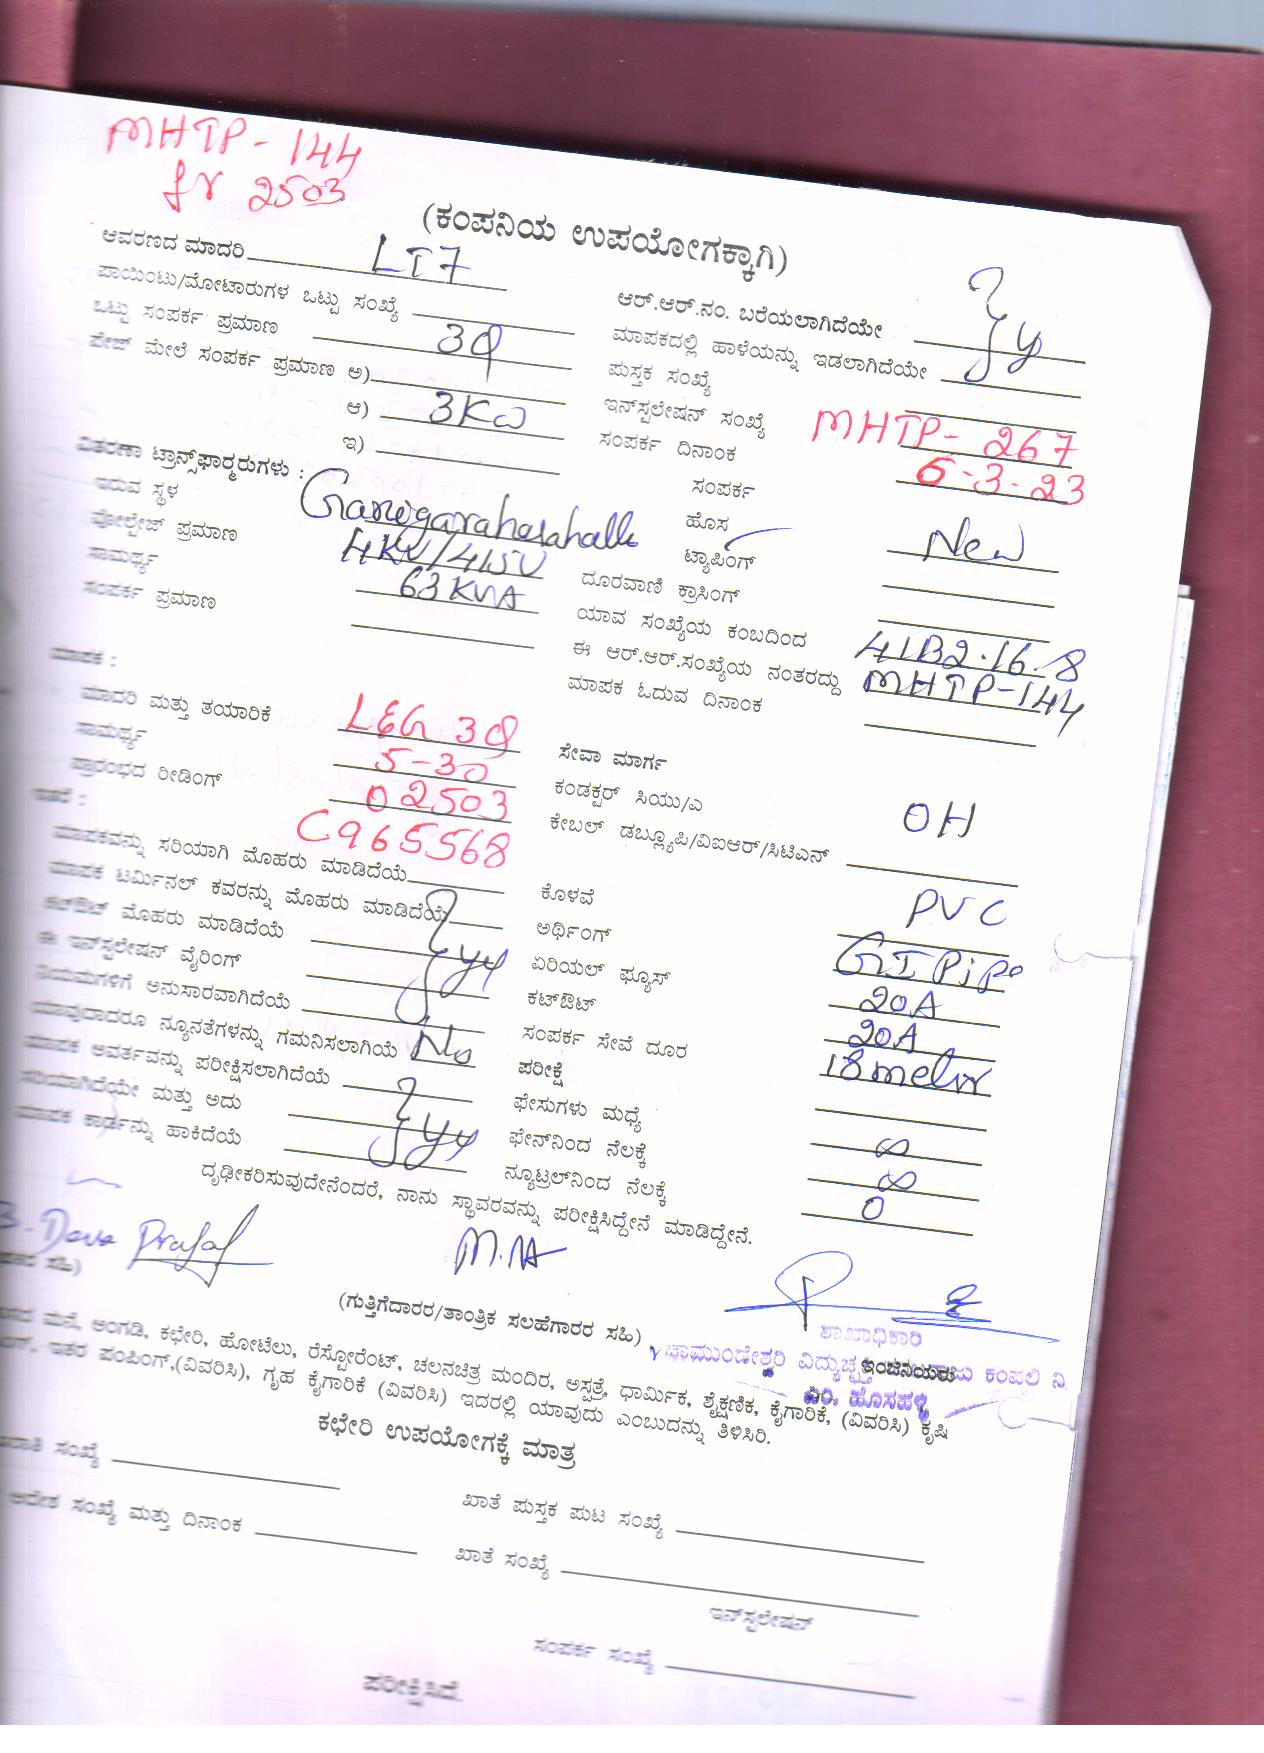 MHTP - 144
fr 2503
(ಕಂಪನಿಯ ಉಪಯೋಗಕ್ಕಾಗಿ)
ಆವರಣದ ಮಾದರಿ LT7
ಪಾಯಿಂಟು/ಮೋಟಾರುಗಳ ಒಟ್ಟು ಸಂಖ್ಯೆ
ಒಟ್ಟು ಸಂಪರ್ಕ ಪ್ರಮಾಣ 3φ
ಪೇಜ್ ಮೇಲೆ ಸಂಪರ್ಕ ಪ್ರಮಾಣ ಅ)
ಆ) 3KW
ಇ)
ವಿತರಣಾ ಟ್ರಾನ್ಸ್‌ಫಾರ್ಮರುಗಳು :
ಇರುವ ಸ್ಥಳ
ವೋಲ್ಟೇಜ್ ಪ್ರಮಾಣ
ಸಾಮರ್ಥ್ಯ 63 KVA
ಸಂಪರ್ಕ ಪ್ರಮಾಣ
ಮಾಪಕ :
ಮಾದರಿ ಮತ್ತು ತಯಾರಿಕೆ L&G 3φ
ಸಾಮರ್ಥ್ಯ 5-30
ಪ್ರಾರಂಭದ ರೀಡಿಂಗ್ 02503
ಇತರೆ : C965568
ಮಾಪಕವನ್ನು ಸರಿಯಾಗಿ ಮೊಹರು ಮಾಡಿದೆಯೆ
ಮಾಪಕ ಟರ್ಮಿನಲ್ ಕವರನ್ನು ಮೊಹರು ಮಾಡಿದೆಯೆ
ಕಟ್‌ಔಟ್ ಮೊಹರು ಮಾಡಿದೆಯೆ
ಈ ಇನ್‌ಸ್ಟಲೇಷನ್ ವೈರಿಂಗ್
ನಿಯಮಗಳಿಗೆ ಅನುಸಾರವಾಗಿದೆಯೆ
ಯಾವುದಾದರೂ ನ್ಯೂನತೆಗಳನ್ನು ಗಮನಿಸಲಾಗಿಯೆ No
ಮಾಪಕ ಆವರ್ತವನ್ನು ಪರೀಕ್ಷಿಸಲಾಗಿದೆಯೆ
ಸರಿಯಾಗಿದೆಯೇ ಮತ್ತು ಅದು
ಮಾಪಕ ಕಾರ್ಡನ್ನು ಹಾಕಿದೆಯೆ
ಆರ್.ಆರ್.ನಂ. ಬರೆಯಲಾಗಿದೆಯೇ
ಮಾಪಕದಲ್ಲಿ ಹಾಳೆಯನ್ನು ಇಡಲಾಗಿದೆಯೇ
ಪುಸ್ತಕ ಸಂಖ್ಯೆ
ಇನ್‌ಸ್ಟಲೇಷನ್ ಸಂಖ್ಯೆ MHTP- 267
ಸಂಪರ್ಕ ದಿನಾಂಕ 6-3-23
ಸಂಪರ್ಕ
ಹೊಸ New
ಟ್ಯಾಪಿಂಗ್
ದೂರವಾಣಿ ಕ್ರಾಸಿಂಗ್
ಯಾವ ಸಂಖ್ಯೆಯ ಕಂಬದಿಂದ 41B2.16.8
ಈ ಆರ್.ಆರ್.ಸಂಖ್ಯೆಯ ನಂತರದ್ದು MHTP-144
ಮಾಪಕ ಓದುವ ದಿನಾಂಕ
ಸೇವಾ ಮಾರ್ಗ
ಕಂಡಕ್ಟರ್ ಸಿಯು/ಎ OH
ಕೇಬಲ್ ಡಬ್ಲ್ಯೂಪಿ/ವಿಐಆರ್/ಸಿಟಿಎನ್
ಕೊಳವೆ PVC
ಅರ್ಥಿಂಗ್ GI Pipe
ಏರಿಯಲ್ ಫ್ಯೂಸ್ 20A
ಕಟ್‌ಔಟ್ 20A
ಸಂಪರ್ಕ ಸೇವೆ ದೂರ 18 meter
ಪರೀಕ್ಷೆ
ಫೇಸುಗಳು ಮಧ್ಯೆ ∞
ಫೇನ್‌ನಿಂದ ನೆಲಕ್ಕೆ ∞
ನ್ಯೂಟ್ರಲ್‌ನಿಂದ ನೆಲಕ್ಕೆ 0
ದೃಢೀಕರಿಸುವುದೇನೆಂದರೆ, ನಾನು ಸ್ಥಾವರವನ್ನು ಪರೀಕ್ಷಿಸಿದ್ದೇನೆ ಮಾಡಿದ್ದೇನೆ.
ಸಹಿ)
(ಗುತ್ತಿಗೆದಾರರ/ತಾಂತ್ರಿಕ ಸಲಹೆಗಾರರ ಸಹಿ)
ಶಾಖಾಧಿಕಾರಿ
ಇಂಜಿನಿಯರು
ಮನೆ, ಅಂಗಡಿ, ಕಛೇರಿ, ಹೋಟೆಲು, ರೆಸ್ಟೋರೆಂಟ್, ಚಲನಚಿತ್ರ ಮಂದಿರ, ಆಸ್ಪತ್ರೆ, ಧಾರ್ಮಿಕ, ಶೈಕ್ಷಣಿಕ, ಕೈಗಾರಿಕೆ, (ವಿವರಿಸಿ) ಕೃಷಿ
ಇತರ ಪಂಪಿಂಗ್,(ವಿವರಿಸಿ), ಗೃಹ ಕೈಗಾರಿಕೆ (ವಿವರಿಸಿ) ಇದರಲ್ಲಿ ಯಾವುದು ಎಂಬುದನ್ನು ತಿಳಿಸಿರಿ.
ಕಛೇರಿ ಉಪಯೋಗಕ್ಕೆ ಮಾತ್ರ
ಸಂಖ್ಯೆ
ಖಾತೆ ಪುಸ್ತಕ ಪುಟ ಸಂಖ್ಯೆ
ಆದೇಶ ಸಂಖ್ಯೆ ಮತ್ತು ದಿನಾಂಕ
ಖಾತೆ ಸಂಖ್ಯೆ
ಇನ್‌ಸ್ಟಲೇಷನ್
ಸಂಪರ್ಕ ಸಂಖ್ಯೆ
ಪರೀಕ್ಷಿಸಿದೆ.